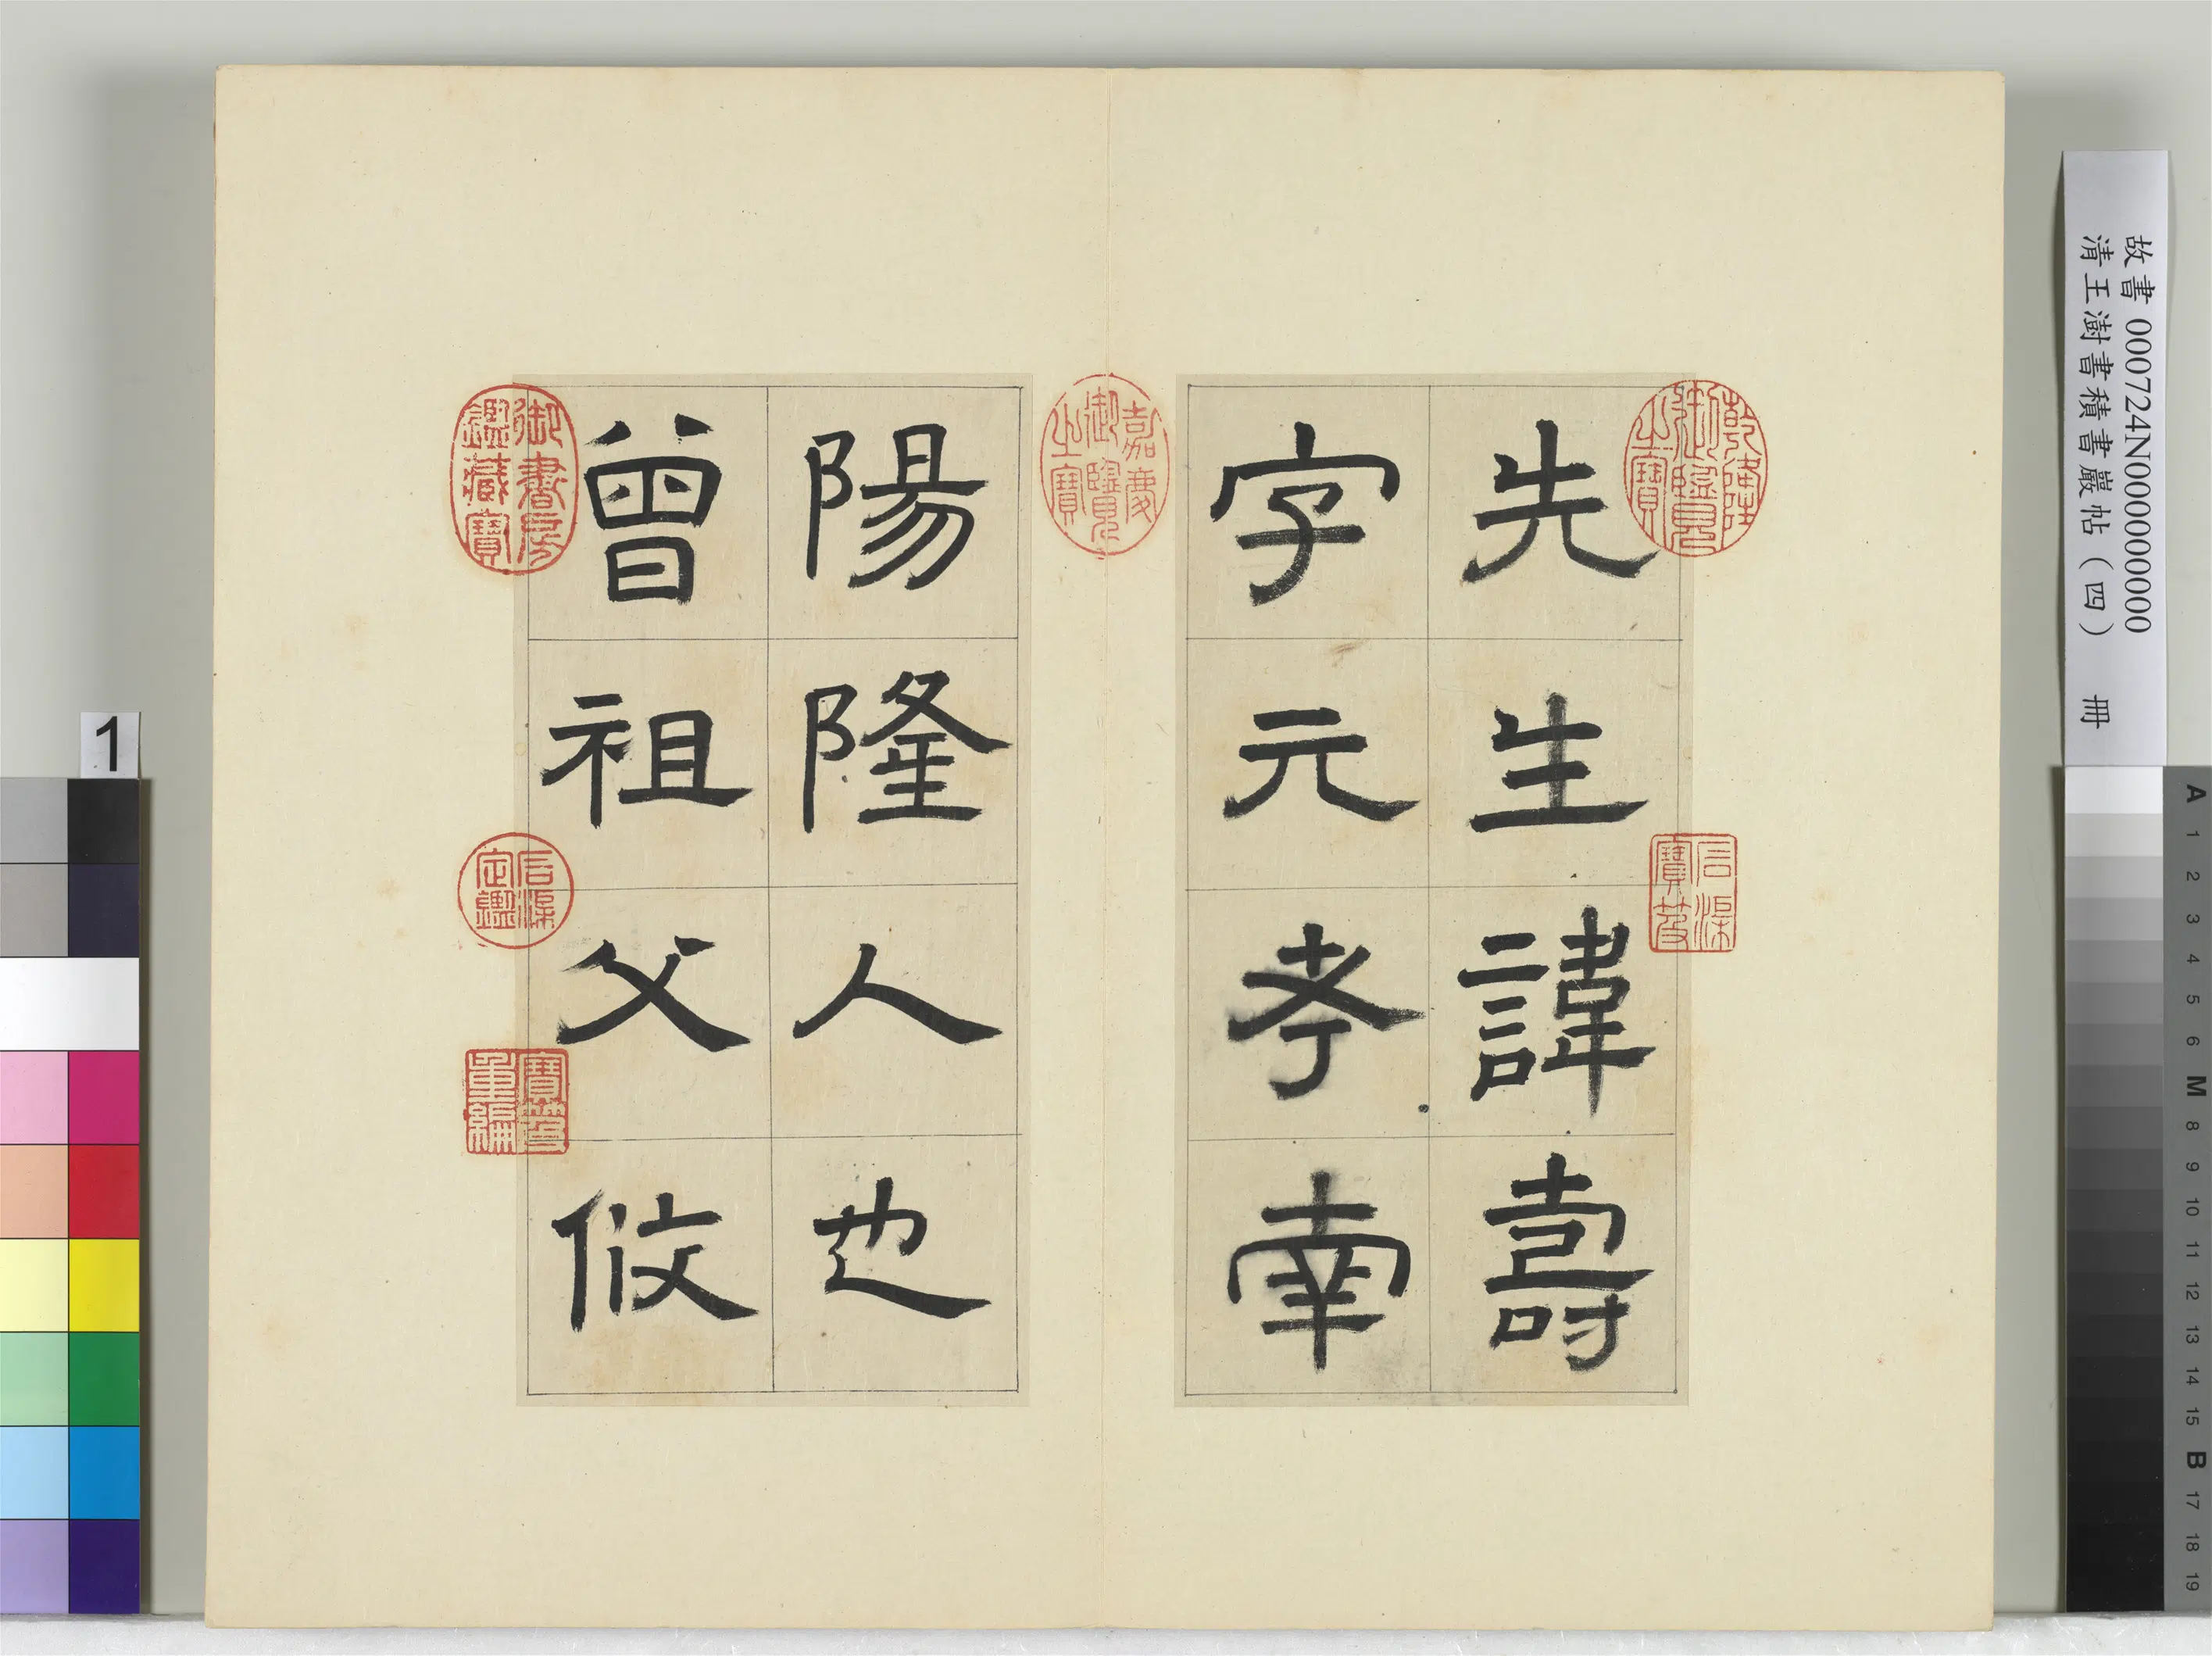 先生諱壽
字元孝南
陽隆人也
曾祖父攸
乾隆御覽之寶
嘉慶御覽之寶
御書房鑑藏寶
石渠寶笈
石渠定鑑
寶笈重編
故書 000724N000000000
清王澍書積書巖帖（四） 冊
1
A
1
2
3
4
5
6
M
8
9
10
11
12
13
14
15
B
17
18
19